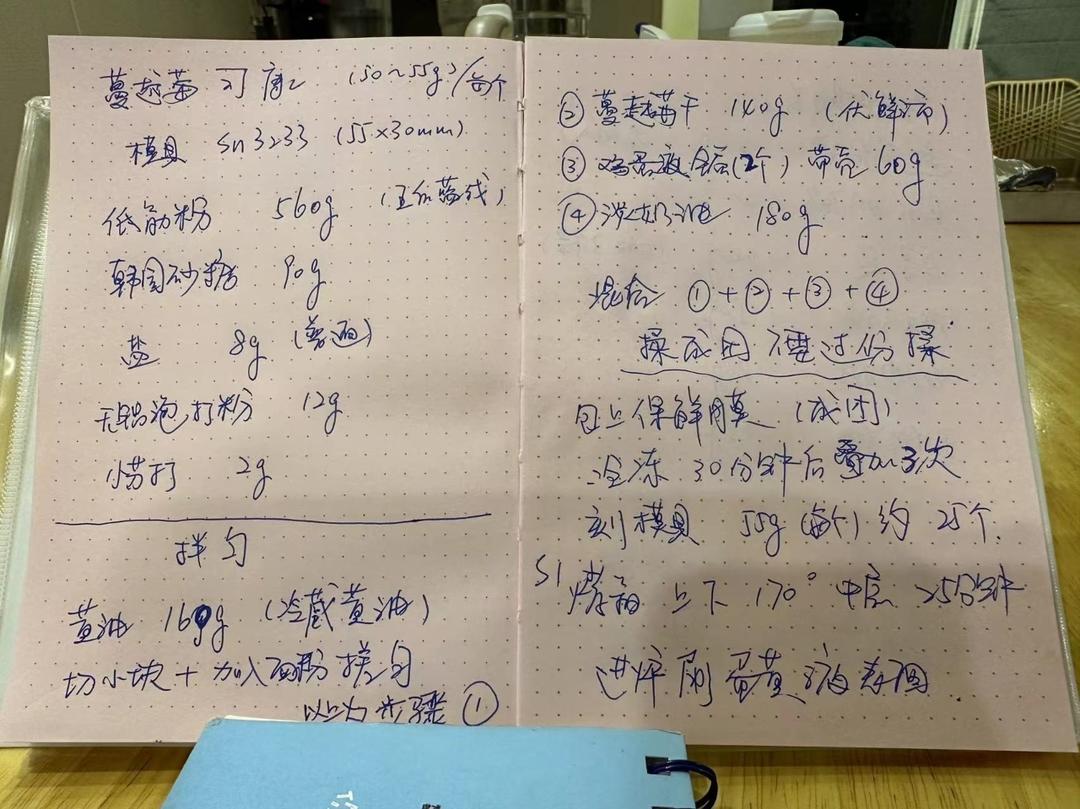 蔓越莓 司康 (50~55g)/每个
模具 Sn3233 (55×30mm)
低筋粉 560g
韩国砂糖 90g
盐 8g (普通)
无铝泡打粉 12g
2g
拌匀
黄油 160g (冷藏黄油)
切小块 + 加入面粉 搓匀
以上为步骤 ①
② 蔓越莓干 140g (优鲜沛)
③ 鸡蛋液全蛋(2个) 带壳 60g
④ 淡奶油 180g
混合 ① + ② + ③ + ④
揉成团 不要过份揉
包上保鲜膜 (成团)
冷冻 30分钟后 叠加3次
刻模具 55g (每个) 约 25个.
S1 烤箱 上下 170° 中层 25分钟
进炉 刷 蛋黄液 表面